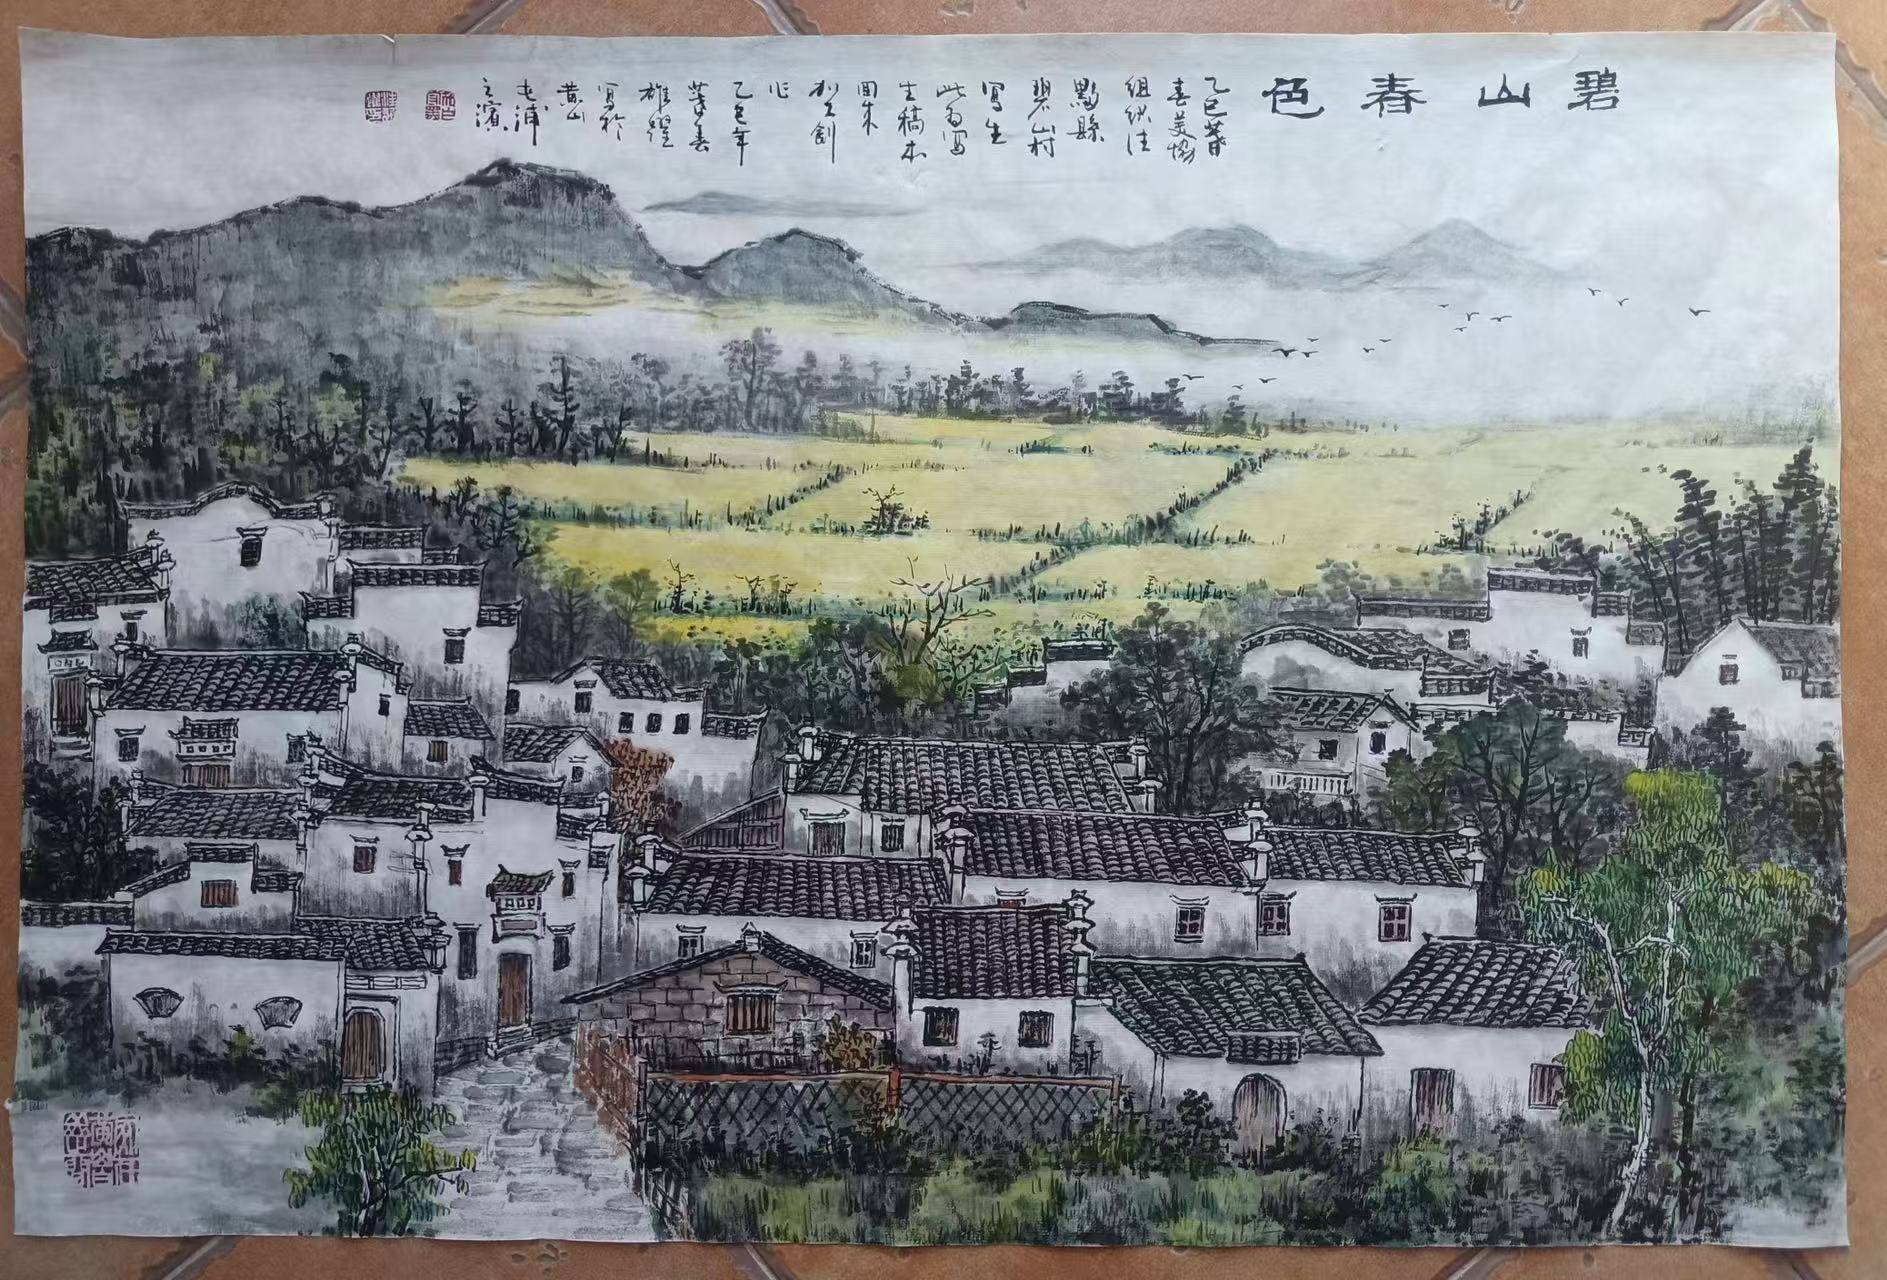 碧山春色
乙巳暮
春美协
组织往
黟县
碧山村
写生
此为写
生稿本
回来
加工创
作
乙巳年
暮春
雄跃
写于
黄山
屯浦
之滨